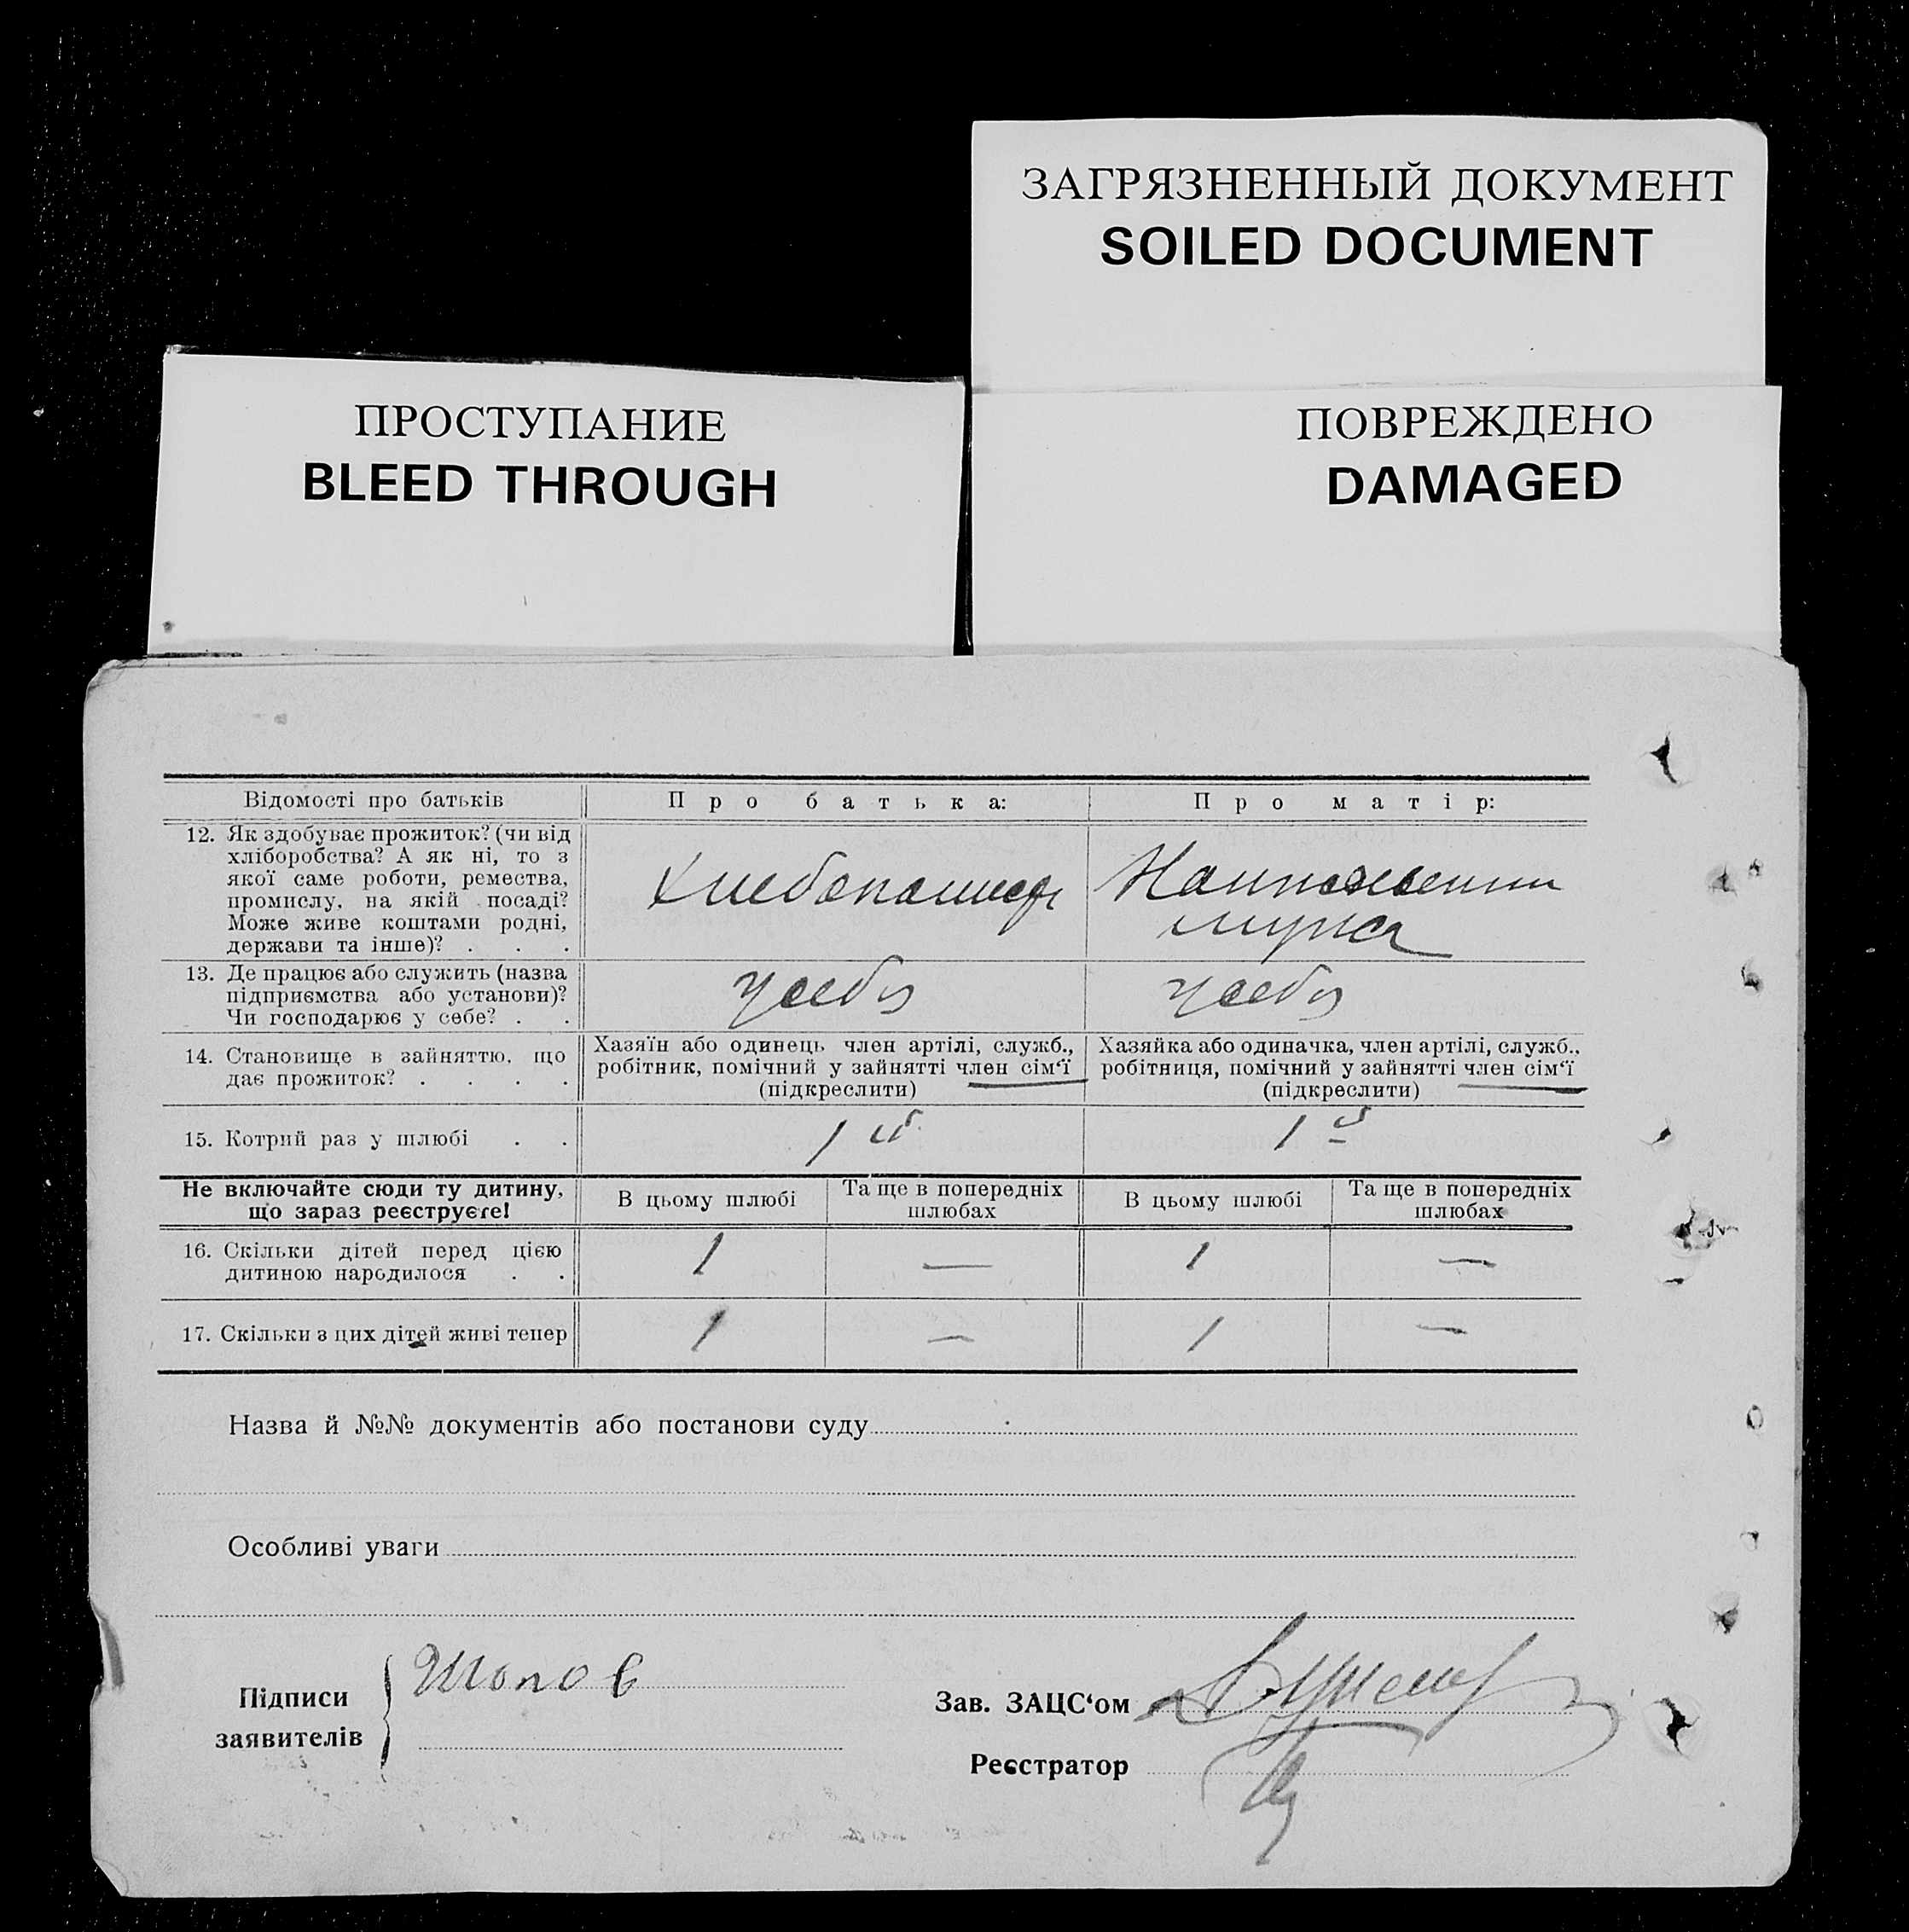 ЗАГРЯЗНЕННЫЙ ДОКУМЕНТ
SOILED DOCUMENT
ПРОСТУПАНИЕ
BLEED THROUGH
ПОВРЕЖДЕНО
DAMAGED
Відомості про батьків
Про батька:
Про матір:
12. Як здобуває прожиток? (чи від
хліборобства? А як ні, то з
якої саме роботи, ремества,
промислу, на якій посаді?
Може живе коштами родні,
держави та інше)? . . .
13. Де працює або служить (назва
підприємства або установи)?
Чи господарює у себе? . .
у себя
у себя
14. Становище в зайняттю, що
дає прожиток? . . . .
Хазяїн або одинець член артілі, служб.,
робітник, помічний у зайнятті член сім'ї
(підкреслити)
Хазяйка або одиначка, член артілі, служб.,
робітниця, помічний у зайнятті член сім'ї
(підкреслити)
15. Котрий раз у шлюбі . .
1 й
1 й
Не включайте сюди ту дитину,
що зараз реєструєте!
В цьому шлюбі
Та ще в попередніх
шлюбах
В цьому шлюбі
Та ще в попередніх
шлюбах
16. Скільки дітей перед цією
дитиною народилося . .
1
—
1
—
17. Скільки з цих дітей живі тепер
1
—
1
—
Назва й №№ документів або постанови суду
Особливі уваги
Підписи
заявителів
Шопов
Зав. ЗАЦС'ом
Реєстратор